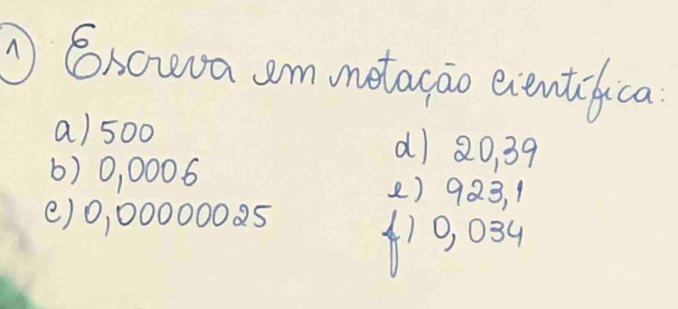 1 Escreva em notação científica:
a) 500
b) 0,0006
c) 0,00000025
d) 20,39
e) 923,1
f) 0,034